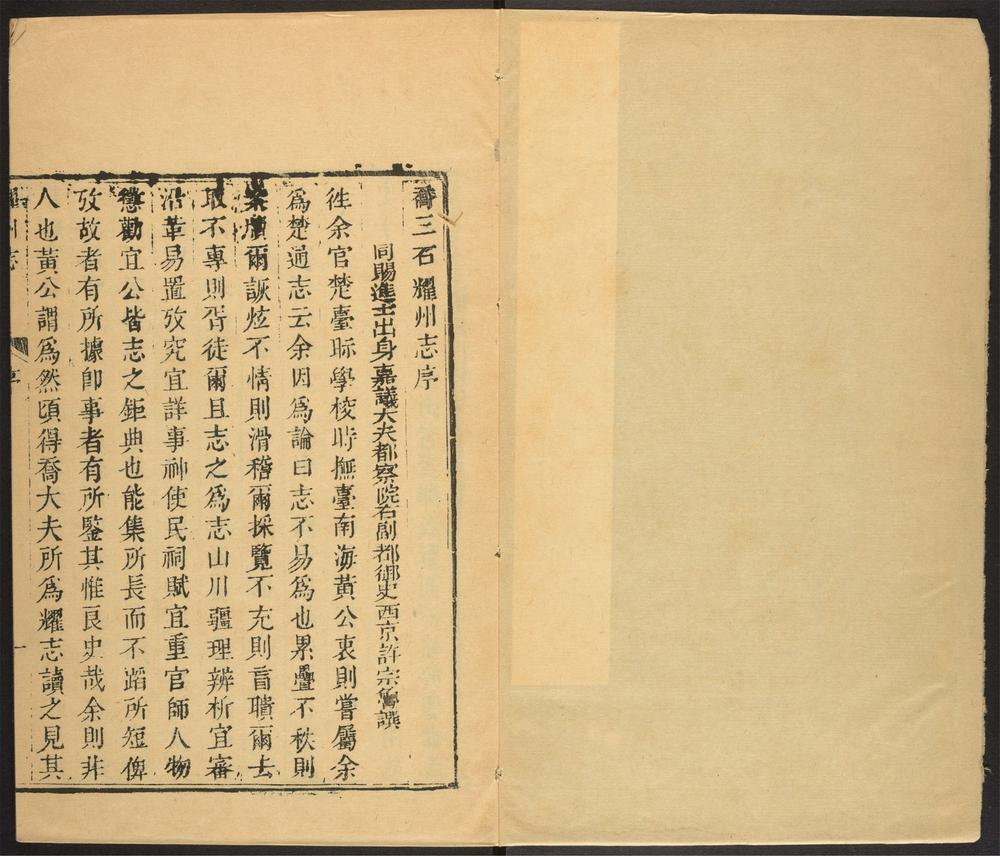 喬三石耀州志序
同賜進士出身嘉議大夫都察院右副都御史西京許宗魯譔
徃余官楚臺眎學校時撫臺南海黃公衷則嘗屬余
爲楚通志云余因爲論曰志不易爲也累疊不秩則
案牘爾詼炫不情則滑稽爾採覽不充則盲聵爾去
取不專則胥徒爾且志之爲志山川疆理辨析宜審
沿革易置攷究宜詳事神使民祠賦宜重官師人物
懲勸宜公皆志之鉅典也能集所長而不蹈所短俾
攷故者有所據卽事者有所鑒其惟良史哉余則非
人也黃公謂爲然頃得喬大夫所爲耀志讀之見其
耀州志
序
一